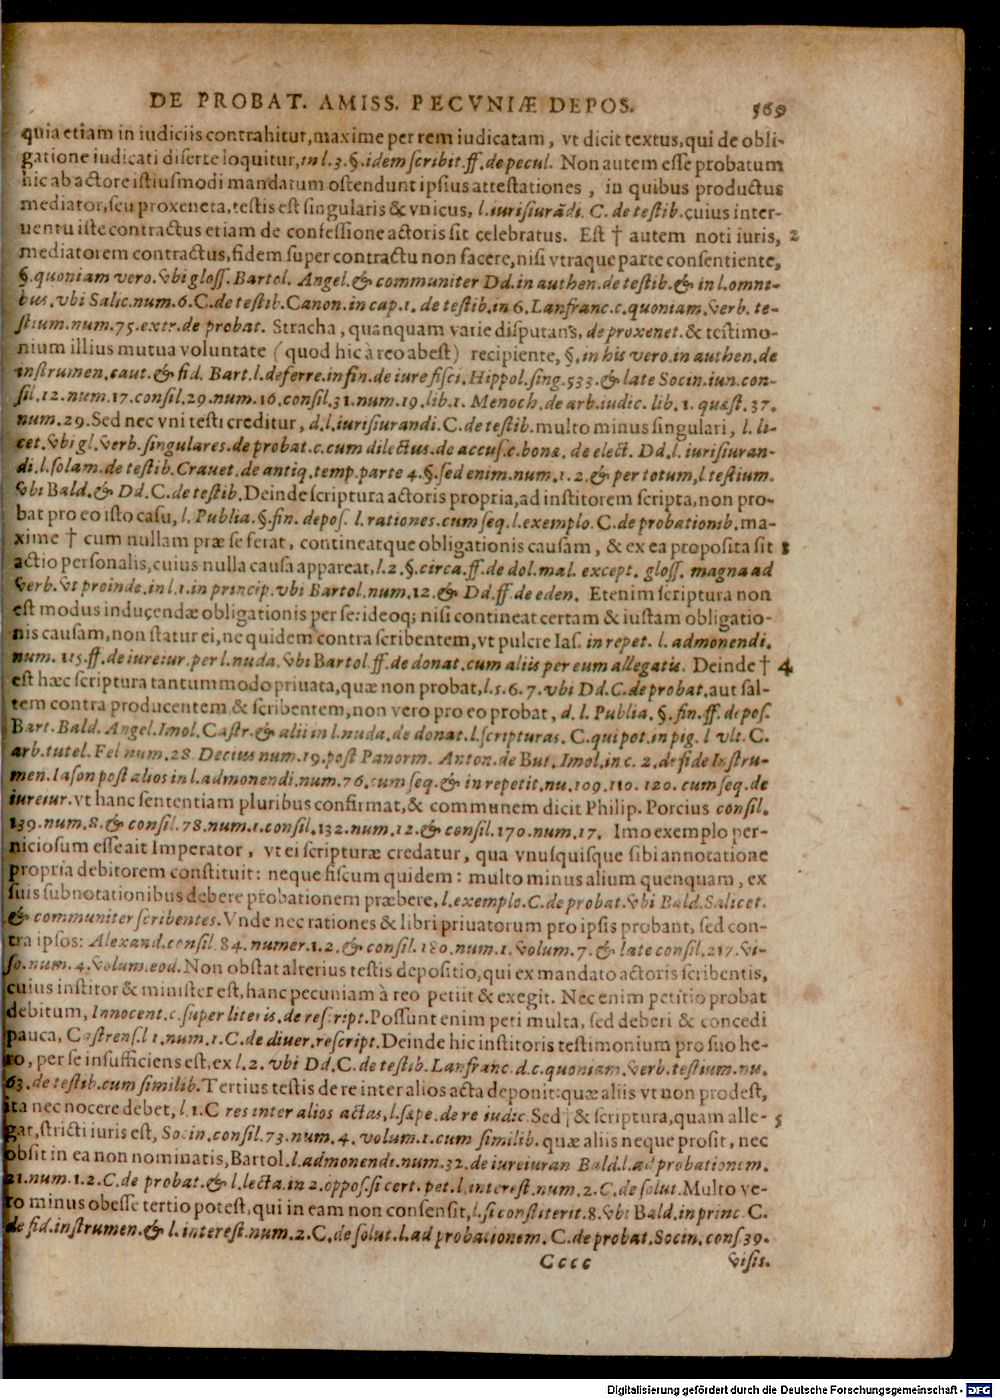 DE PROBAT. AMISS. PECVNIÆ DEPOS. 569
quia etiam in iudiciis contrahitur, maxime per rem iudicatam, vt dicit textus, qui de obli-
gatione iudicati diserte loquitur, in l. 3. §. idem scribit. ff. de pecul. Non autem esse probatum
hic ab actore istiusmodi mandatum ostendunt ipsius attestationes, in quibus productus
mediator, seu proxeneta, testis est singularis & vnicus, l. iurisiurādi. C. de testib. cuius inter-
uentu iste contractus etiam de confessione actoris sit celebratus. Est † autem noti iuris, 2
mediatorem contractus, fidem super contractu non facere, nisi vtraque parte consentiente,
§. quoniam vero. vbi gloss. Bartol. Angel. & communiter Dd. in authen. de testib. & in l. omni-
bus. vbi Salic. num. 6. C. de testib. Canon. in cap. 1. de testib. in 6. Lanfranc. c. quoniam. verb. te-
stium. num. 75. extr. de probat. Stracha, quanquam varie disputans, de proxenet. & testimo-
nium illius mutua voluntate (quod hic à reo abest) recipiente, §. in his vero. in authen. de
instrumen. caut. & fid. Bart. l. deferre. in fin. de iure fisci, Hippol. sing. 533. & late Socin. iun. con-
sil. 12. num. 17. consil. 29. num. 16. consil. 31. num. 19. lib. 1. Menoch. de arb. iudic. lib. 1. quæst. 37.
num. 29. Sed nec vni testi creditur, d. l. iurisiurandi. C. de testib. multo minus singulari, l. li-
cet. vbi gl. verb. singulares. de probat. c. cum dilectus. de accus. c. bonæ. de elect. Dd. l. iurisiuran-
di. l. solam. de testib. Crauet. de antiq. temp. parte 4. §. sed enim. num. 1. 2. & per totum, l. testium.
vbi Bald. & Dd. C. de testib. Deinde scriptura actoris propria, ad institorem scripta, non pro-
bat pro eo isto casu, l. Publia. §. fin. depos. l. rationes. cum seq. l. exemplo. C. de probationib. ma-
xime † cum nullam præ se ferat, contineatque obligationis causam, & ex ea proposita sit 3
actio personalis, cuius nulla causa appareat, l. 2. §. circa. ff. de dol. mal. except. gloss. magna ad
verb. vt proinde. in l. 1. in princip. vbi Bartol. num. 12. & Dd. ff. de eden. Etenim scriptura non
est modus inducendæ obligationis per se: ideoq; nisi contineat certam & iustam obligatio-
nis causam, non statur ei, ne quidem contra scribentem, vt pulcre Ias. in repet. l. admonendi.
num. 115. ff. de iureiur. per l. nuda. vbi Bartol. ff. de donat. cum aliis per eum allegatis. Deinde † 4
est hæc scriptura tantummodo priuata, quæ non probat, l. 5. 6. 7. vbi Dd. C. de probat. aut sal-
tem contra producentem & scribentem, non vero pro eo probat, d. l. Publia. §. fin. ff. depos.
Bart. Bald. Angel. Imol. Castr. & alii in l. nuda. de donat. l. scripturas. C. qui pot. in pig. l. vlt. C.
arb. tutel. Fel. num. 28. Decius num. 19. post Panorm. Anton. de But. Imol. in c. 2. de fide Instru-
men. Iason post alios in l. admonendi. num. 76. cum seq. & in repetit. nu. 109. 110. 120. cum seq. de
iureiur. vt hanc sententiam pluribus confirmat, & communem dicit Philip. Porcius consil.
139. num. 8. & consil. 78. num. 1. consil. 132. num. 12. & consil. 170. num. 17. Imo exemplo per-
niciosum esse ait Imperator, vt ei scripturæ credatur, qua vnusquisque sibi annotatione
propria debitorem constituit: neque fiscum quidem: multo minus alium quenquam, ex
suis subnotationibus debere probationem præbere, l. exemplo. C. de probat. vbi Bald. Salicet.
& communiter scribentes. Vnde nec rationes & libri priuatorum pro ipsis probant, sed con-
tra ipsos: Alexand. consil. 84. numer. 1. 2. & consil. 180. num. 1. volum. 7. & late consil. 217. vi-
so. num. 4. volum. eod. Non obstat alterius testis depositio, qui ex mandato actoris scribentis,
cuius institor & minister est, hanc pecuniam à reo petiit & exegit. Nec enim petitio probat
debitum, Innocent. c. super literis. de rescript. Possunt enim peti multa, sed deberi & concedi
pauca, Castrens. l. 1. num. 1. C. de diuer. rescript. Deinde hic institoris testimonium pro suo he-
ro, per se insufficiens est, ex l. 2. vbi Dd. C. de testib. Lanfranc. d. c. quoniam. verb. testium. nu.
63. de testib. cum similib. Tertius testis de re inter alios acta deponit: quæ aliis vt non prodest,
ita nec nocere debet, l. 1. C. res inter alios actas, l. sæpe. de re iudic. Sed † & scriptura, quam alle- 5
gat, stricti iuris est, Socin. consil. 73. num. 4. volum. 1. cum similib. quæ aliis neque prosit, nec
obsit in ea non nominatis, Bartol. l. admonendi. num. 32. de iureiuran. Bald. l. ad probationem.
21. num. 1. 2. C. de probat. & l. lecta. in 2. oppos. si cert. pet. l. interest. num. 2. C. de solut. Multo ve-
ro minus obesse tertio potest, qui in eam non consensit, l. si constiterit. 8. vbi Bald. in princ. C.
de fid. instrumen. & l. interest. num. 2. C. de solut. l. ad probationem. C. de probat. Socin. cons 39.
Cccc visis.
Digitalisierung gefördert durch die Deutsche Forschungsgemeinschaft - DFG